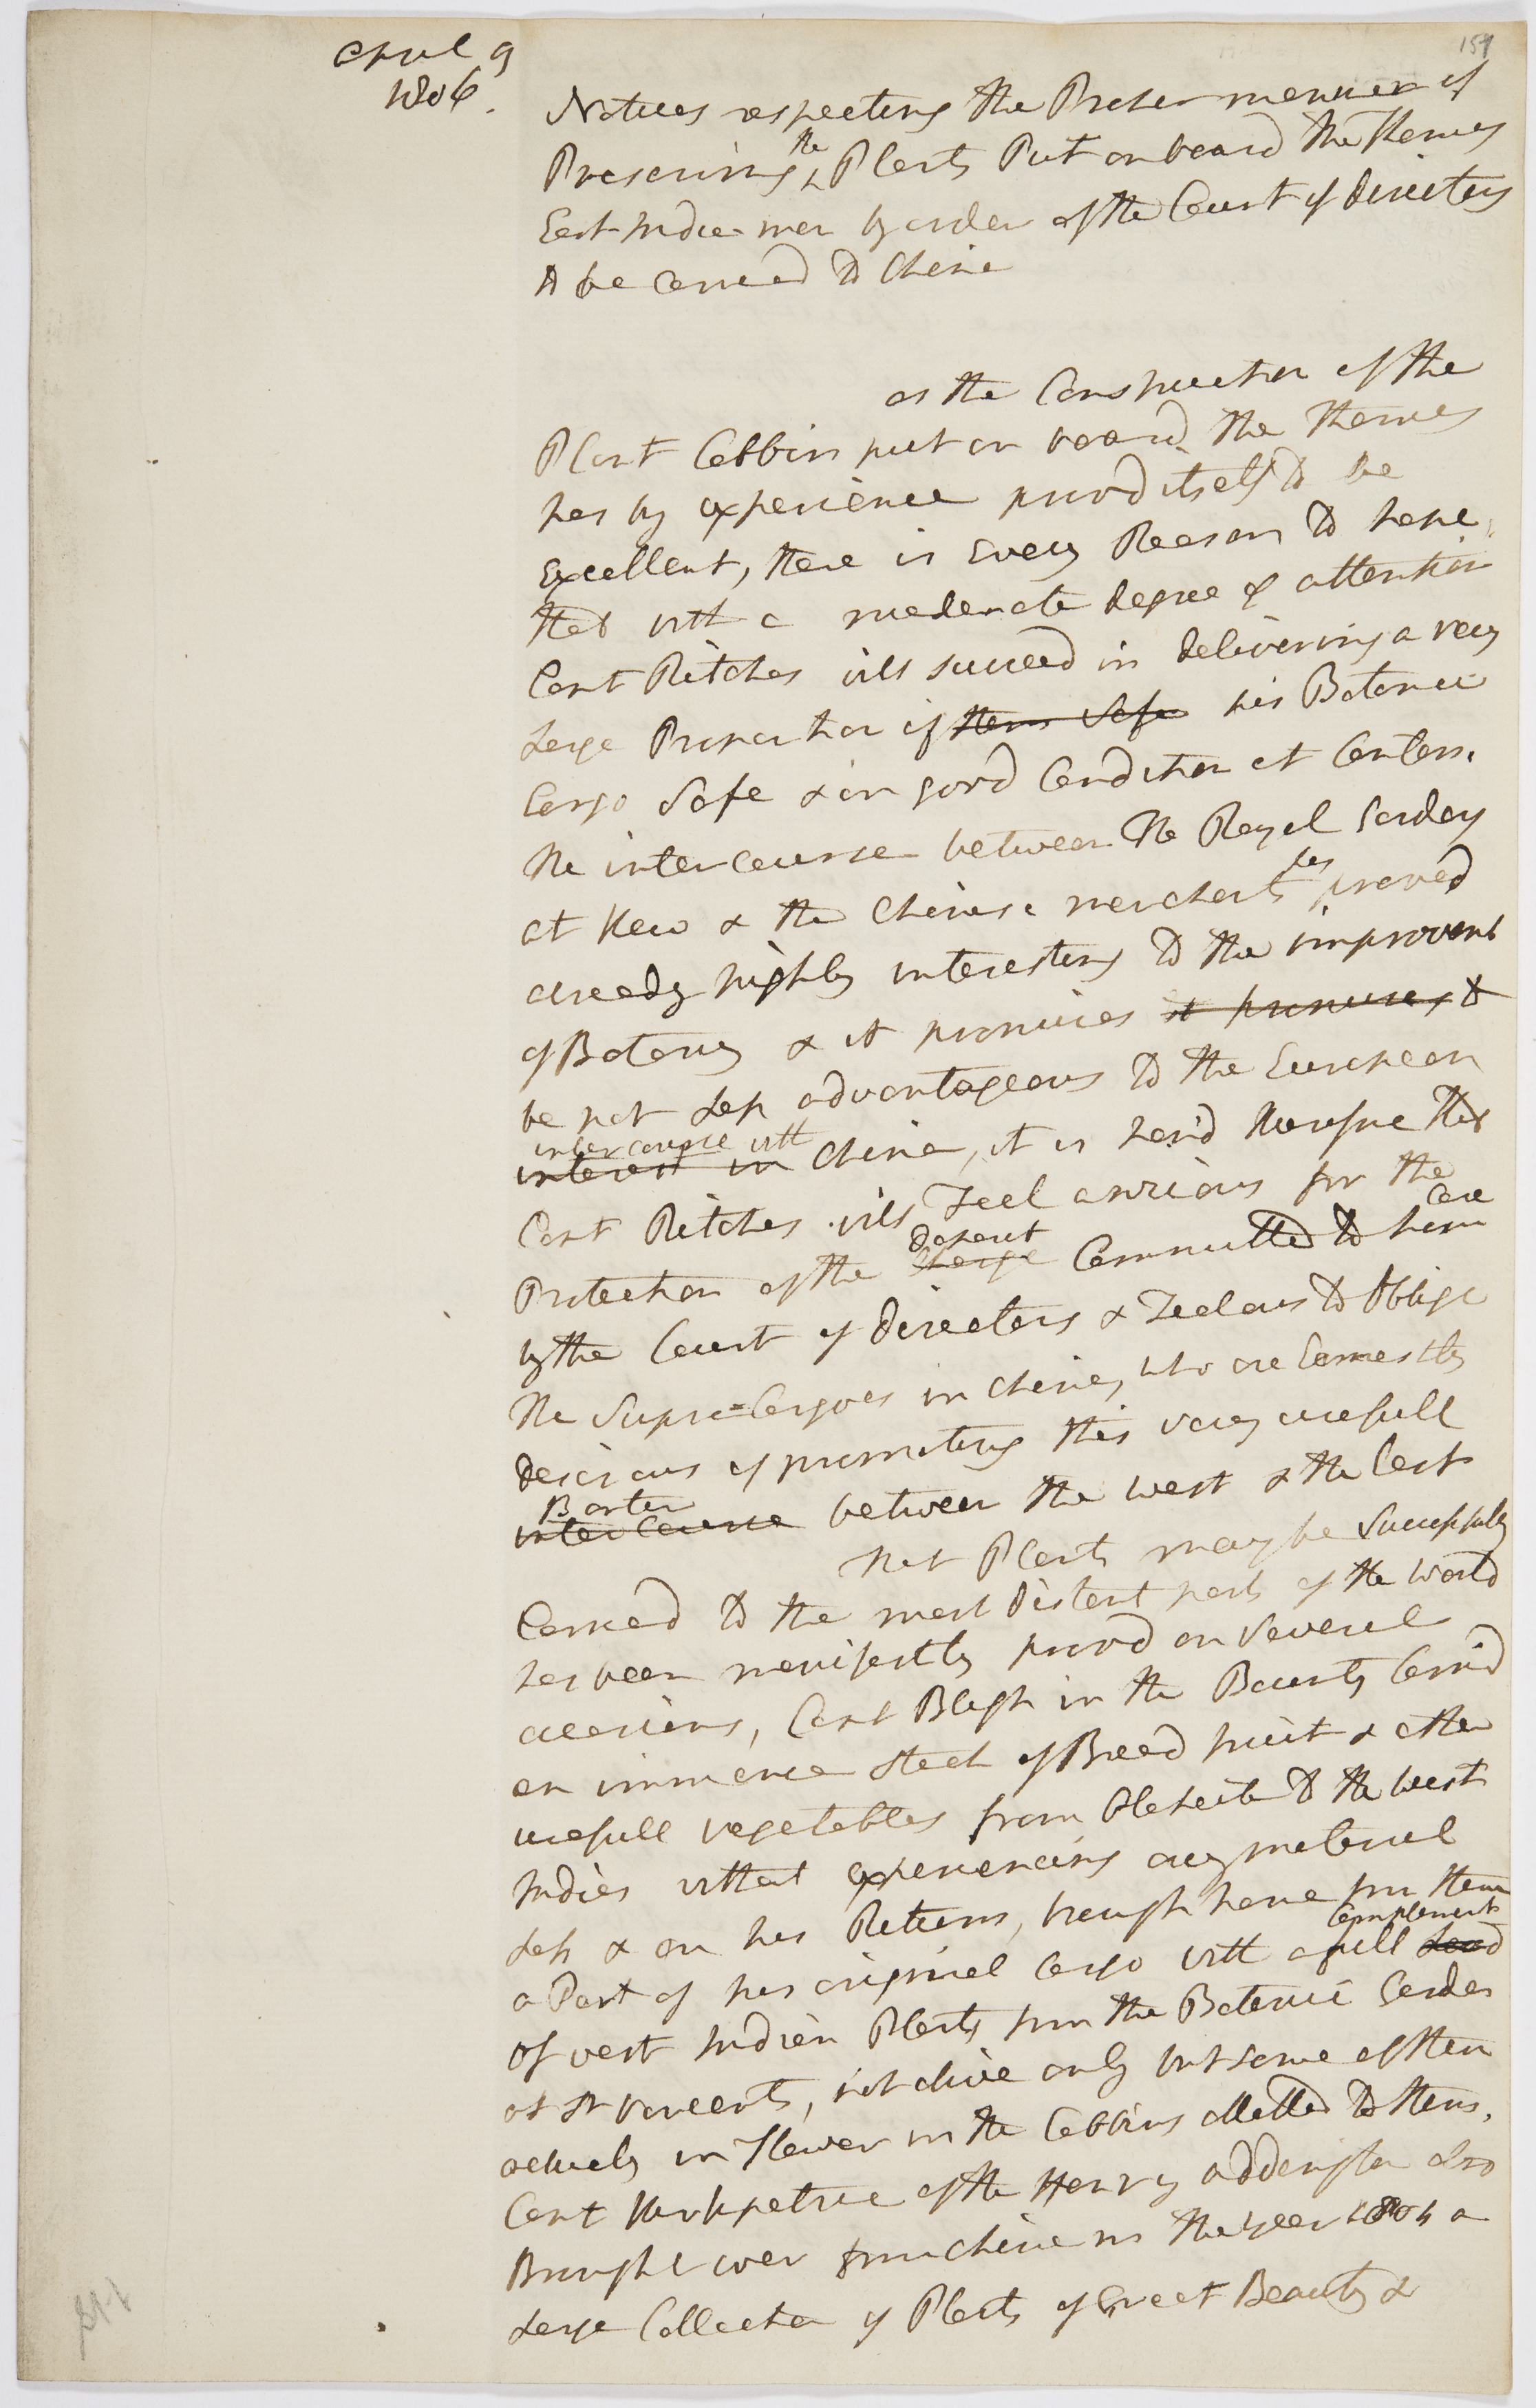 April 9
1806.
159
Notices respecting the Proper manner of
Preserving the Plants Put on board the Thames
East India man by order of the Court of directors
to be Carried to China
as the Construction of the
Plant Cabbin put on board the Thames
has by experience provd itself to be
Excellent, there is Every Reason to hope,
that with a moderate degree of attention
Capt Ritches will succeed in delivering a very
Large Proportion of them Safe his Botanic
Cargo Safe & in good Condition at Canton.
The intercourse between the Royal Gardens
at Kew & the Chinese merchants has proved
already highly interesting to the improvemt
of Botany & it promises it promises to
be not Less advantageous to the European
intercourse with
interest in China, it is hop'd therefore that
Capt Ritches will Feel anxious for the
Protection of the Charge Deposit Committed to him Care
by the Court of directors & Zealous to Oblige
the Supra=Cargoes in China, who are Earnestly
desirous of promoting this very usefull
Barter
intercourse between the west & the East
that Plants may be Successfully
Carried to the most distant parts of the world
has been manifestly provd on Several
occasions, Capt Bligh in the Bounty Carrid
an immence stock of Bread fruit & other
usefull vegetables from Otaheite to the west
Indies without experiencing any material
Loss & on his Return, brought home from thence
a Part of his original Cargo with a full Load Complement
Of west Indian Plants from the Botanic Garden
at St vincents, not alive only but some of them
actualy in Flower in the Cabbins allotted to them.
Capt Kirkpatric of the Henry addington also
Brought over from China in the year 1804 a
Large Collection of Plants of Great Beauty &